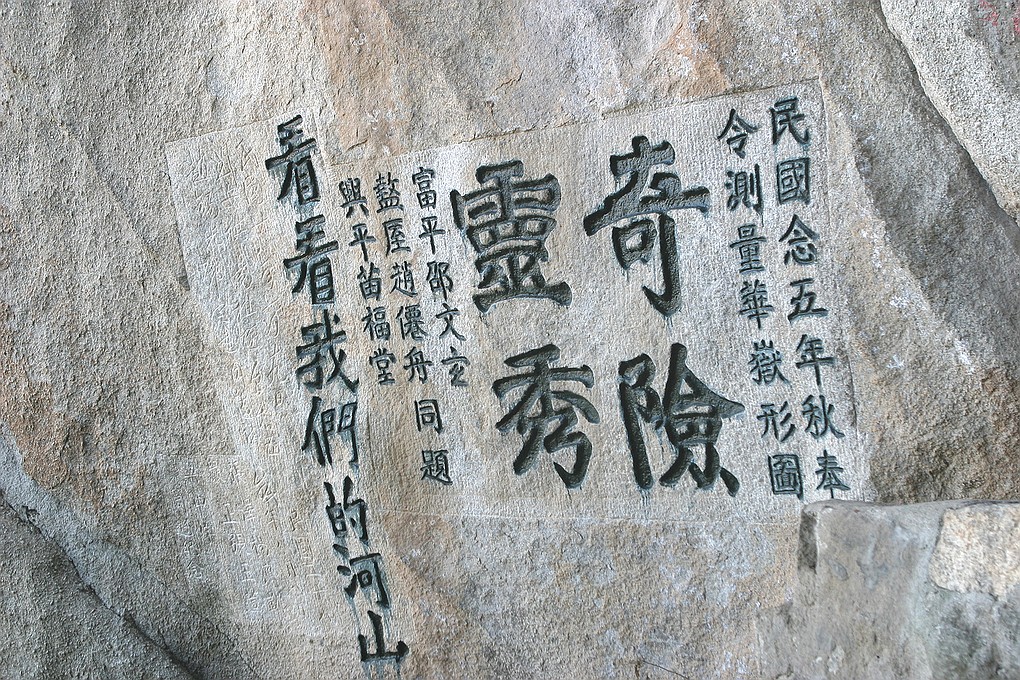 民國念五年秋奉
令測量華嶽形圖
奇險
靈秀
富平邵文玄
盩厔趙僊舟同題
興平苗福堂
看看我們的河山